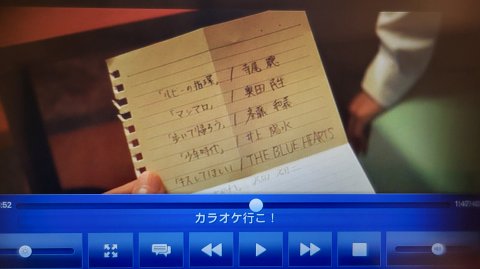 「ルビーの指環」/寺尾 聰
「マシマロ」/奥田 民生
「歩いて帰ろう」/斉藤 和義
「少年時代」/井上 陽水
「キスしてほしい」/THE BLUE HEARTS
:52
カラオケ行こ!